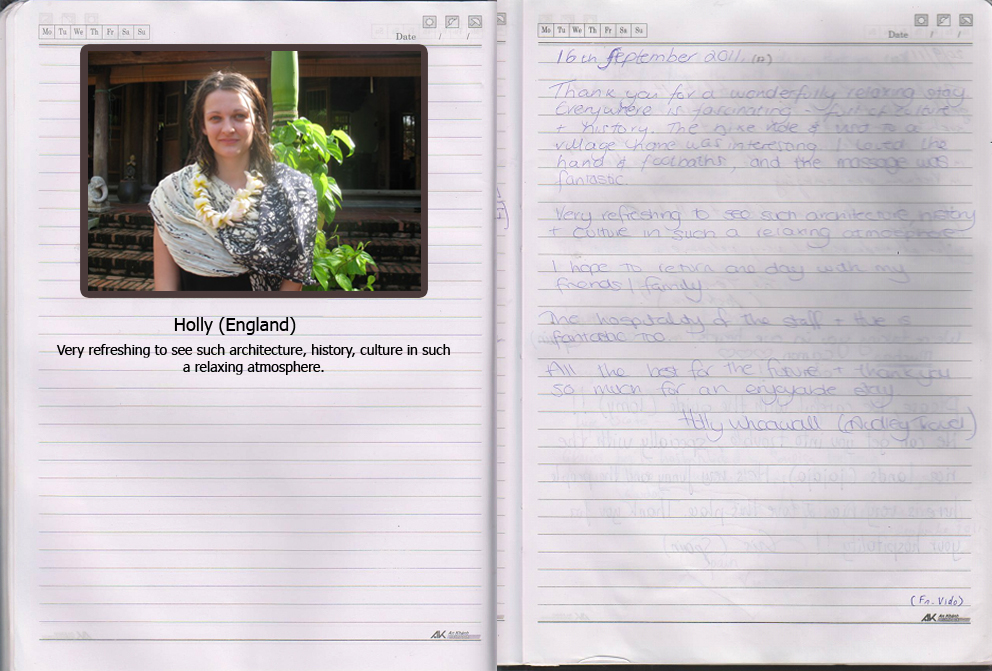 Mo Tu We Th Fr Sa Su
Date / /
Holly (England)
Very refreshing to see such architecture, history, culture in such
a relaxing atmosphere.
AK An Khánh
Mo Tu We Th Fr Sa Su
Date / /
16th September 2011.
Thank you for a wonderfully relaxing stay.
Everywhere is fascinating
+ history. The ride to a
village home was interesting. I loved the
hand & footbaths, and the massage was
fantastic.
Very refreshing to see such architecture, history
+ culture in such a relaxing atmosphere
I hope to return one day with my
friends / family
The hospitality of the staff is
fantastic too.
All the best for the future + thank you
so much for an enjoyable stay
Holly
(Fn. Vido)
AK An Khánh